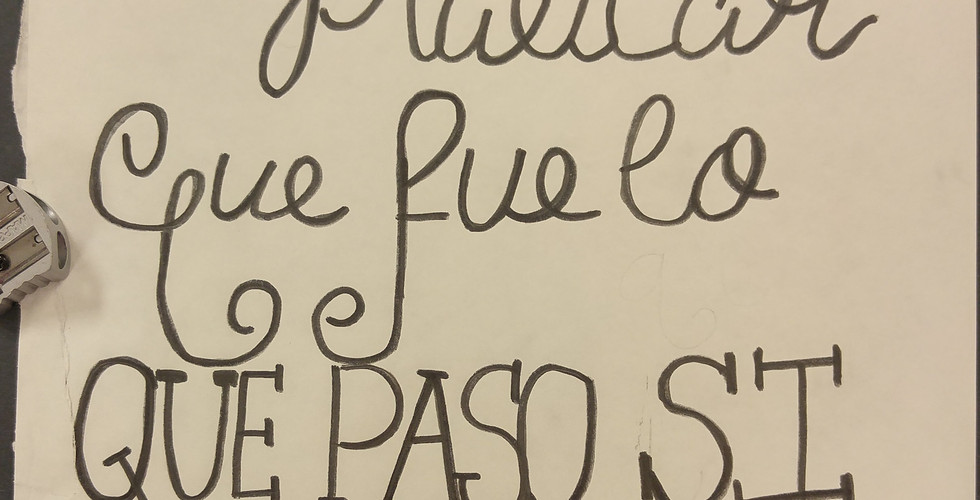 Que fue lo
QUE PASO SI